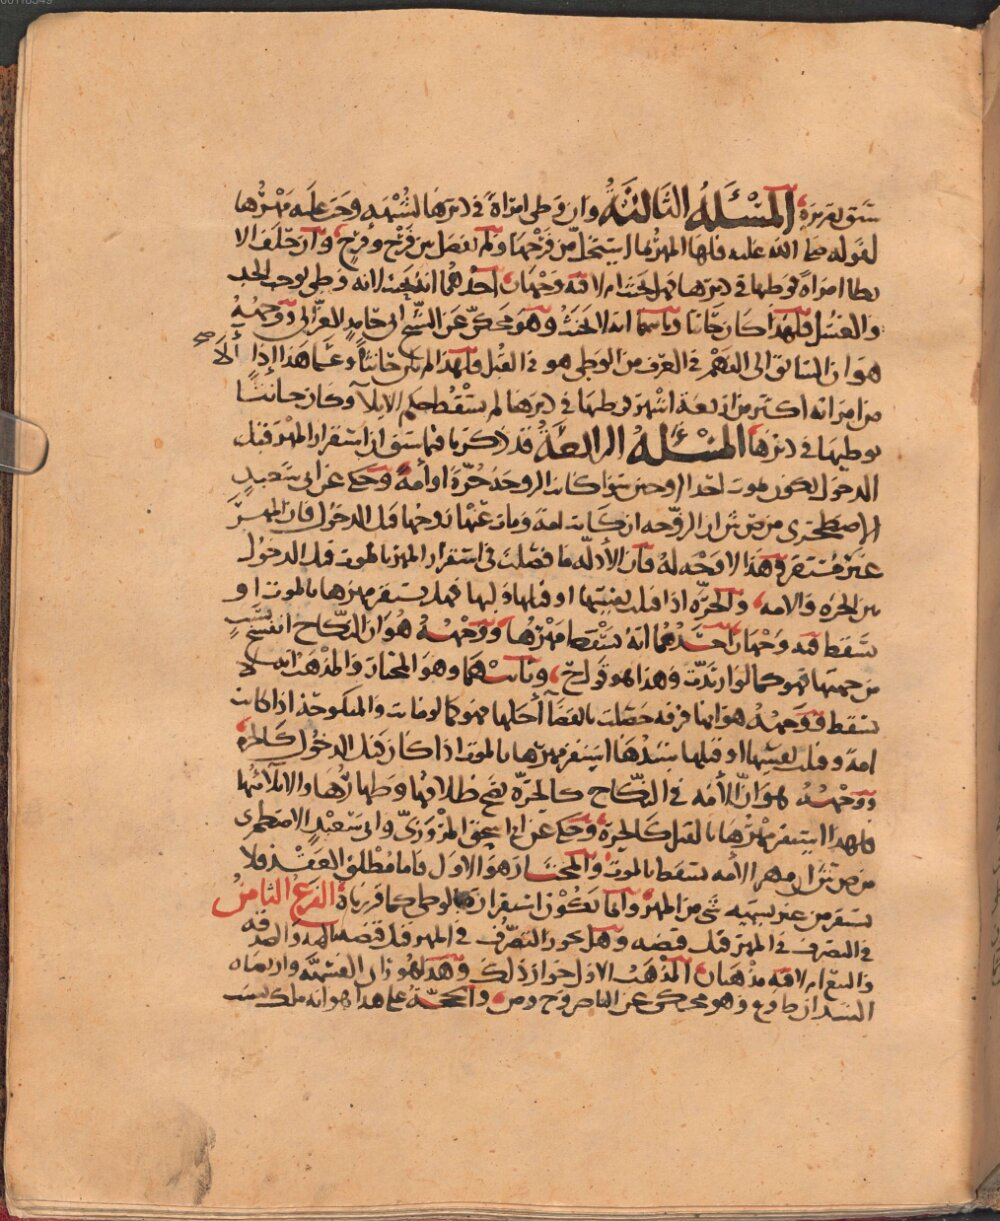 سبق تقريره المسئلة الثالثة وان وطى امراة في دبرها لشبهه وجب عليه مهرها
لقوله صلى الله عليه فلها المهر بما استحل من فرجها ولم يفصل بين فرج وفرج وان حلف الا
يطا امراة فوطيها في دبرها فهل يحنث ام لا فيه وجهان احدهما انه يحنث لانه وطى يوجب الحد
والغسل فلهذا كان حانثا وثانيهما انه لا يحنث وهو محكي عن الشيخ ابي حامد الغزالي ووجهه
هو ان السابق الى الفهم في العرف من الوطى هو في القبل فلهذا لم يكن حانثا وعلى هذا إذا آلا صح
من امراته اكثر من اربعة اشهر فوطيها في دبرها لم يسقط حكم الايلآ وكان حانثا
بوطيها في دبرها المسئلة الرابعة قد ذكرنا فيما سبق ان استقرار المهر قبل
الدخول يكون بموت احد الزوجين سوا كانت الزوجة حرة او أمة وحكي عن ابي سعيد
الاصطخري من ص ش ان الزوجه ان كانت امة ومات عنها زوجها قبل الدخول فان المهر
غير مستقر وهذا لا وجه له فان الأدله ما فصلت في استقرار المهر بالموت قبل الدخول
بين الحره والامه والحره اذا قتلت نفسها او قتلها وليها فهل يستقر مهرها بالموت او
يسقط فيه وجهان احدهما انه يسقط مهرها ووجهه هو ان النكاح انفسخ بسبب
من جهتها فهو كما لو ارتدت وهذا هو قول ح وثانيهما وهو المختار والمذهب انه لا
يسقط ووجهه هو انها فرقه حصلت بانقضآ أجلها فهو كما لو ماتت والمنكوحة اذا كانت
امة وقتلت نفسها او قتلها سيدها استقر مهرها بالموت اذا كان قبل الدخول كالحره
ووجهه هو ان الأمه في النكاح كالحرة يصح طلاقها وظهارها والايلآ منها
فلهذا استقر مهرها بالقتل كالحرة وحكي عن ابي اسحق المروزي وابي سعيد الاصطخري
من ص ش ان مهر الأمه يسقط بالموت والمختار هو الاول فاما مطلق العقد فلا
يستقر من غير تسميه شي من المهر وانما يكون استقراره بالوطى كما قررناه الفرع الثامن
في التصرف في المهر قبل قبضه وهل يجوز التصرف في المهر قبل قبضه بالهبه والصدقه
والبيع ام لا فيه مذهبان المذهب الاول جواز ذلك وهذا هو راي القسميه
السيدان ط وع وهو محكي عن الناصر وح وص والحجة على هذا هو انه ملك